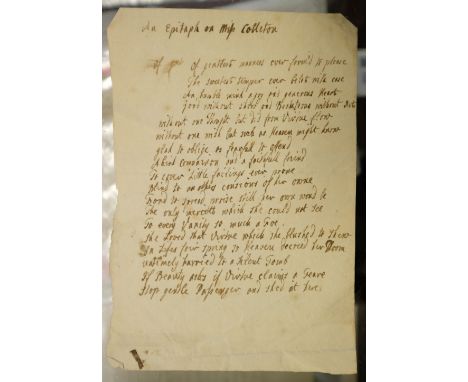 An Epitaph on Miss Colleton
If of gentlest manners ever form'd to please
The sweetest temper ever blest with ease
An humble mind a gay and generous Heart
Good without and without Art
without one Thought but did from Virtue flow
without one wish but such as Heaven might know
glad to oblige as fearfull to offend
A kind Companion and a faithfull friend
To cover Little failings ever prone
Blind to an others conscious of her owne
fond to spread praise still her own wou'd be
The only merit which she could not see
To every Vanity so much a foe
She Loved that Virtue which she blushed to Shew
In Lifes fair spring so Heaven decreed her Doom
untimely hurried to a silent Tomb
If Beauty asks if Virtue claims a Teare
Stop gentle Passenger and shed it here